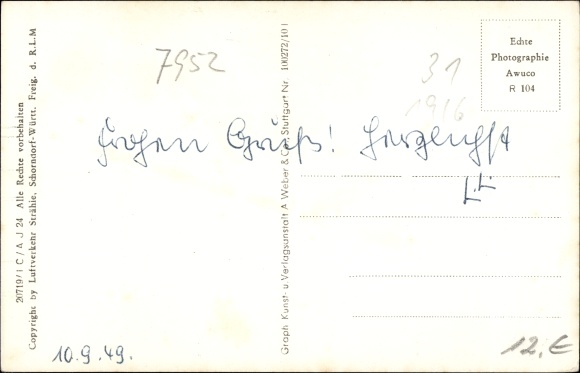 20719/I C/A J 24 Alle Rechte vorbehalten
Copyright by Luftverkehr Strähle, Schorndorf-Württ. Freig. d. R.L.M
7952
Frohen Gruß! Herzlichst
L.L.
10.9.49.
Graph Kunst- u Verlagsanstalt A Weber & Co. Stuttgart Nr. 100272/10
31
1916
Echte
Photographie
Awuco
R 104
12.€